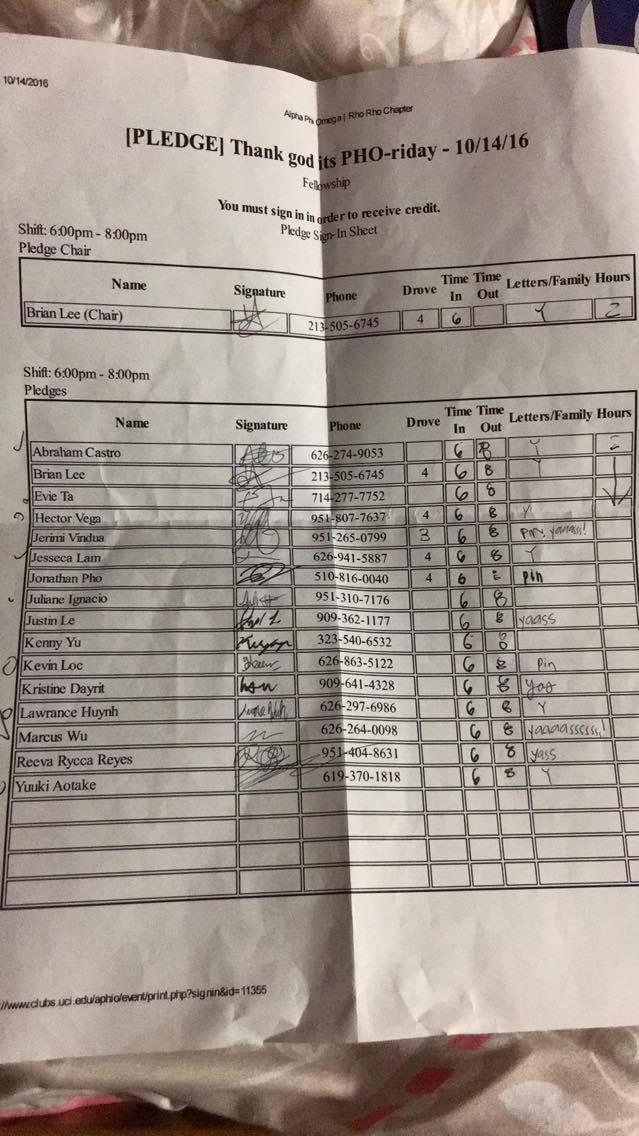 10/14/2016
Alpha Phi Omega | Rho Rho Chapter
[PLEDGE] Thank god its PHO-riday - 10/14/16
Fellowship
You must sign in in order to receive credit.
Pledge Sign-In Sheet
Shift: 6:00pm - 8:00pm
Pledge Chair
Name Signature Phone Drove Time In Time Out Letters/Family Hours
Brian Lee (Chair) 213-505-6745 4 6 Y 2
Shift: 6:00pm - 8:00pm
Pledges
Name Signature Phone Drove Time In Time Out Letters/Family Hours
Abraham Castro 626-274-9053 6 8 Y 2
Brian Lee 213-505-6745 4 6 8 Y
Evie Ta 714-277-7752 6 8
Hector Vega 951-807-7637 4 6 8 Y
Jerimi Vindua 951-265-0799 3 6 8 pin, yaaass!
Jesseca Lam 626-941-5887 4 6 8 Y
Jonathan Pho 510-816-0040 4 6 8 pin
Juliane Ignacio 951-310-7176 6 8
Justin Le 909-362-1177 6 8 yaass
Kenny Yu 323-540-6532 6 8
Kevin Loc 626-863-5122 6 8 Pin
Kristine Dayrit 909-641-4328 6 8 yas
Lawrance Huynh 626-297-6986 6 8 Y
Marcus Wu 626-264-0098 6 8 yaaaassssss!
Reeva Rycca Reyes 951-404-8631 6 8 yass
Yuuki Aotake 619-370-1818 6 8 Y
//www.clubs.uci.edu/aphio/event/print.php?signin&id=11355